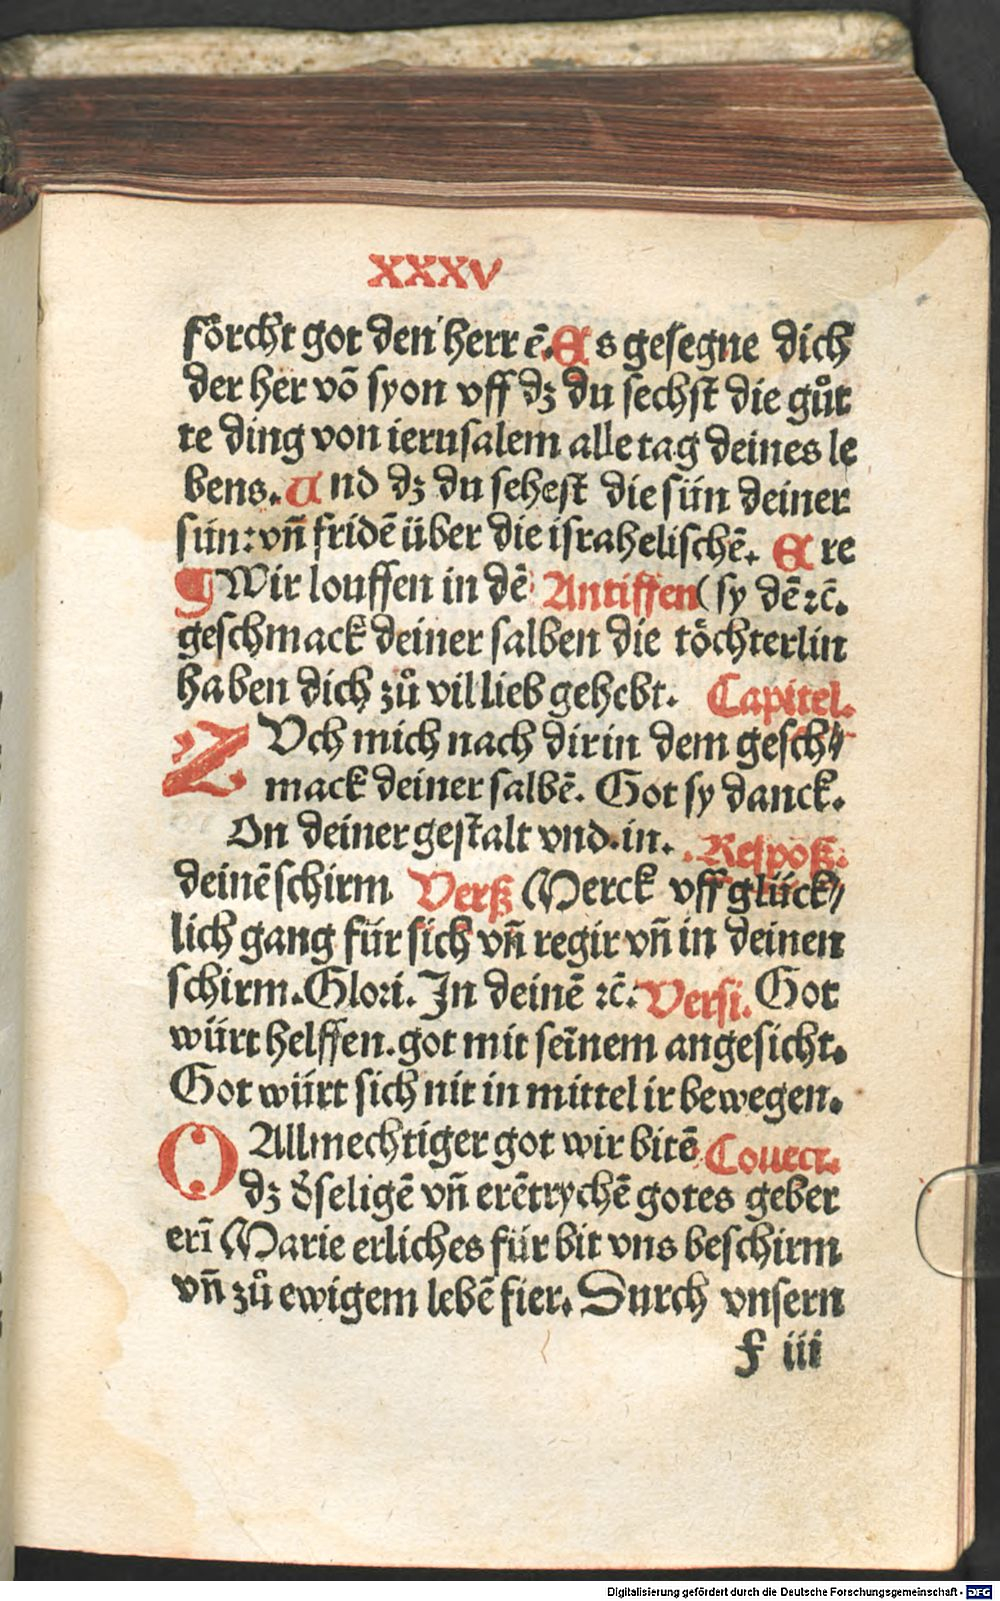 XXXV
förcht got den herr ē. Es gesegne dich
der her vō syon vff dʒ du sechst die gůt
te ding von ierusalem alle tag deines le
bens. Und dʒ du sehest die sün deiner
sün: vñ fridē über die israhelischē. Ere
Wir louffen in dē Antiffen (sy dē ⁊c̄.
geschmack deiner salben die töchterlin
haben dich zů vil lieb gehebt. Capitel.
ZVch mich nach dir in dem gesch⸗
mack deiner salbē. Got sy danck.
On deiner gestalt vnd in. Respōß.
deinē schirm Verß Merck vff glück⸗
lich gang für sich vñ regir vñ in deinen
schirm. Glori. In deinē ⁊c̄. Versi. Got
würt helffen. got mit seinem angesicht.
Got würt sich nit in mittel ir bewegen.
O Allmechtiger got wir bitē Collect.
dʒ d̕ seligē vñ erētrychē gotes geber
erī Marie erliches für bit vns beschirm
vñ zů ewigem lebē fier. Durch vnsern
f iii
Digitalisierung gefördert durch die Deutsche Forschungsgemeinschaft - DFG